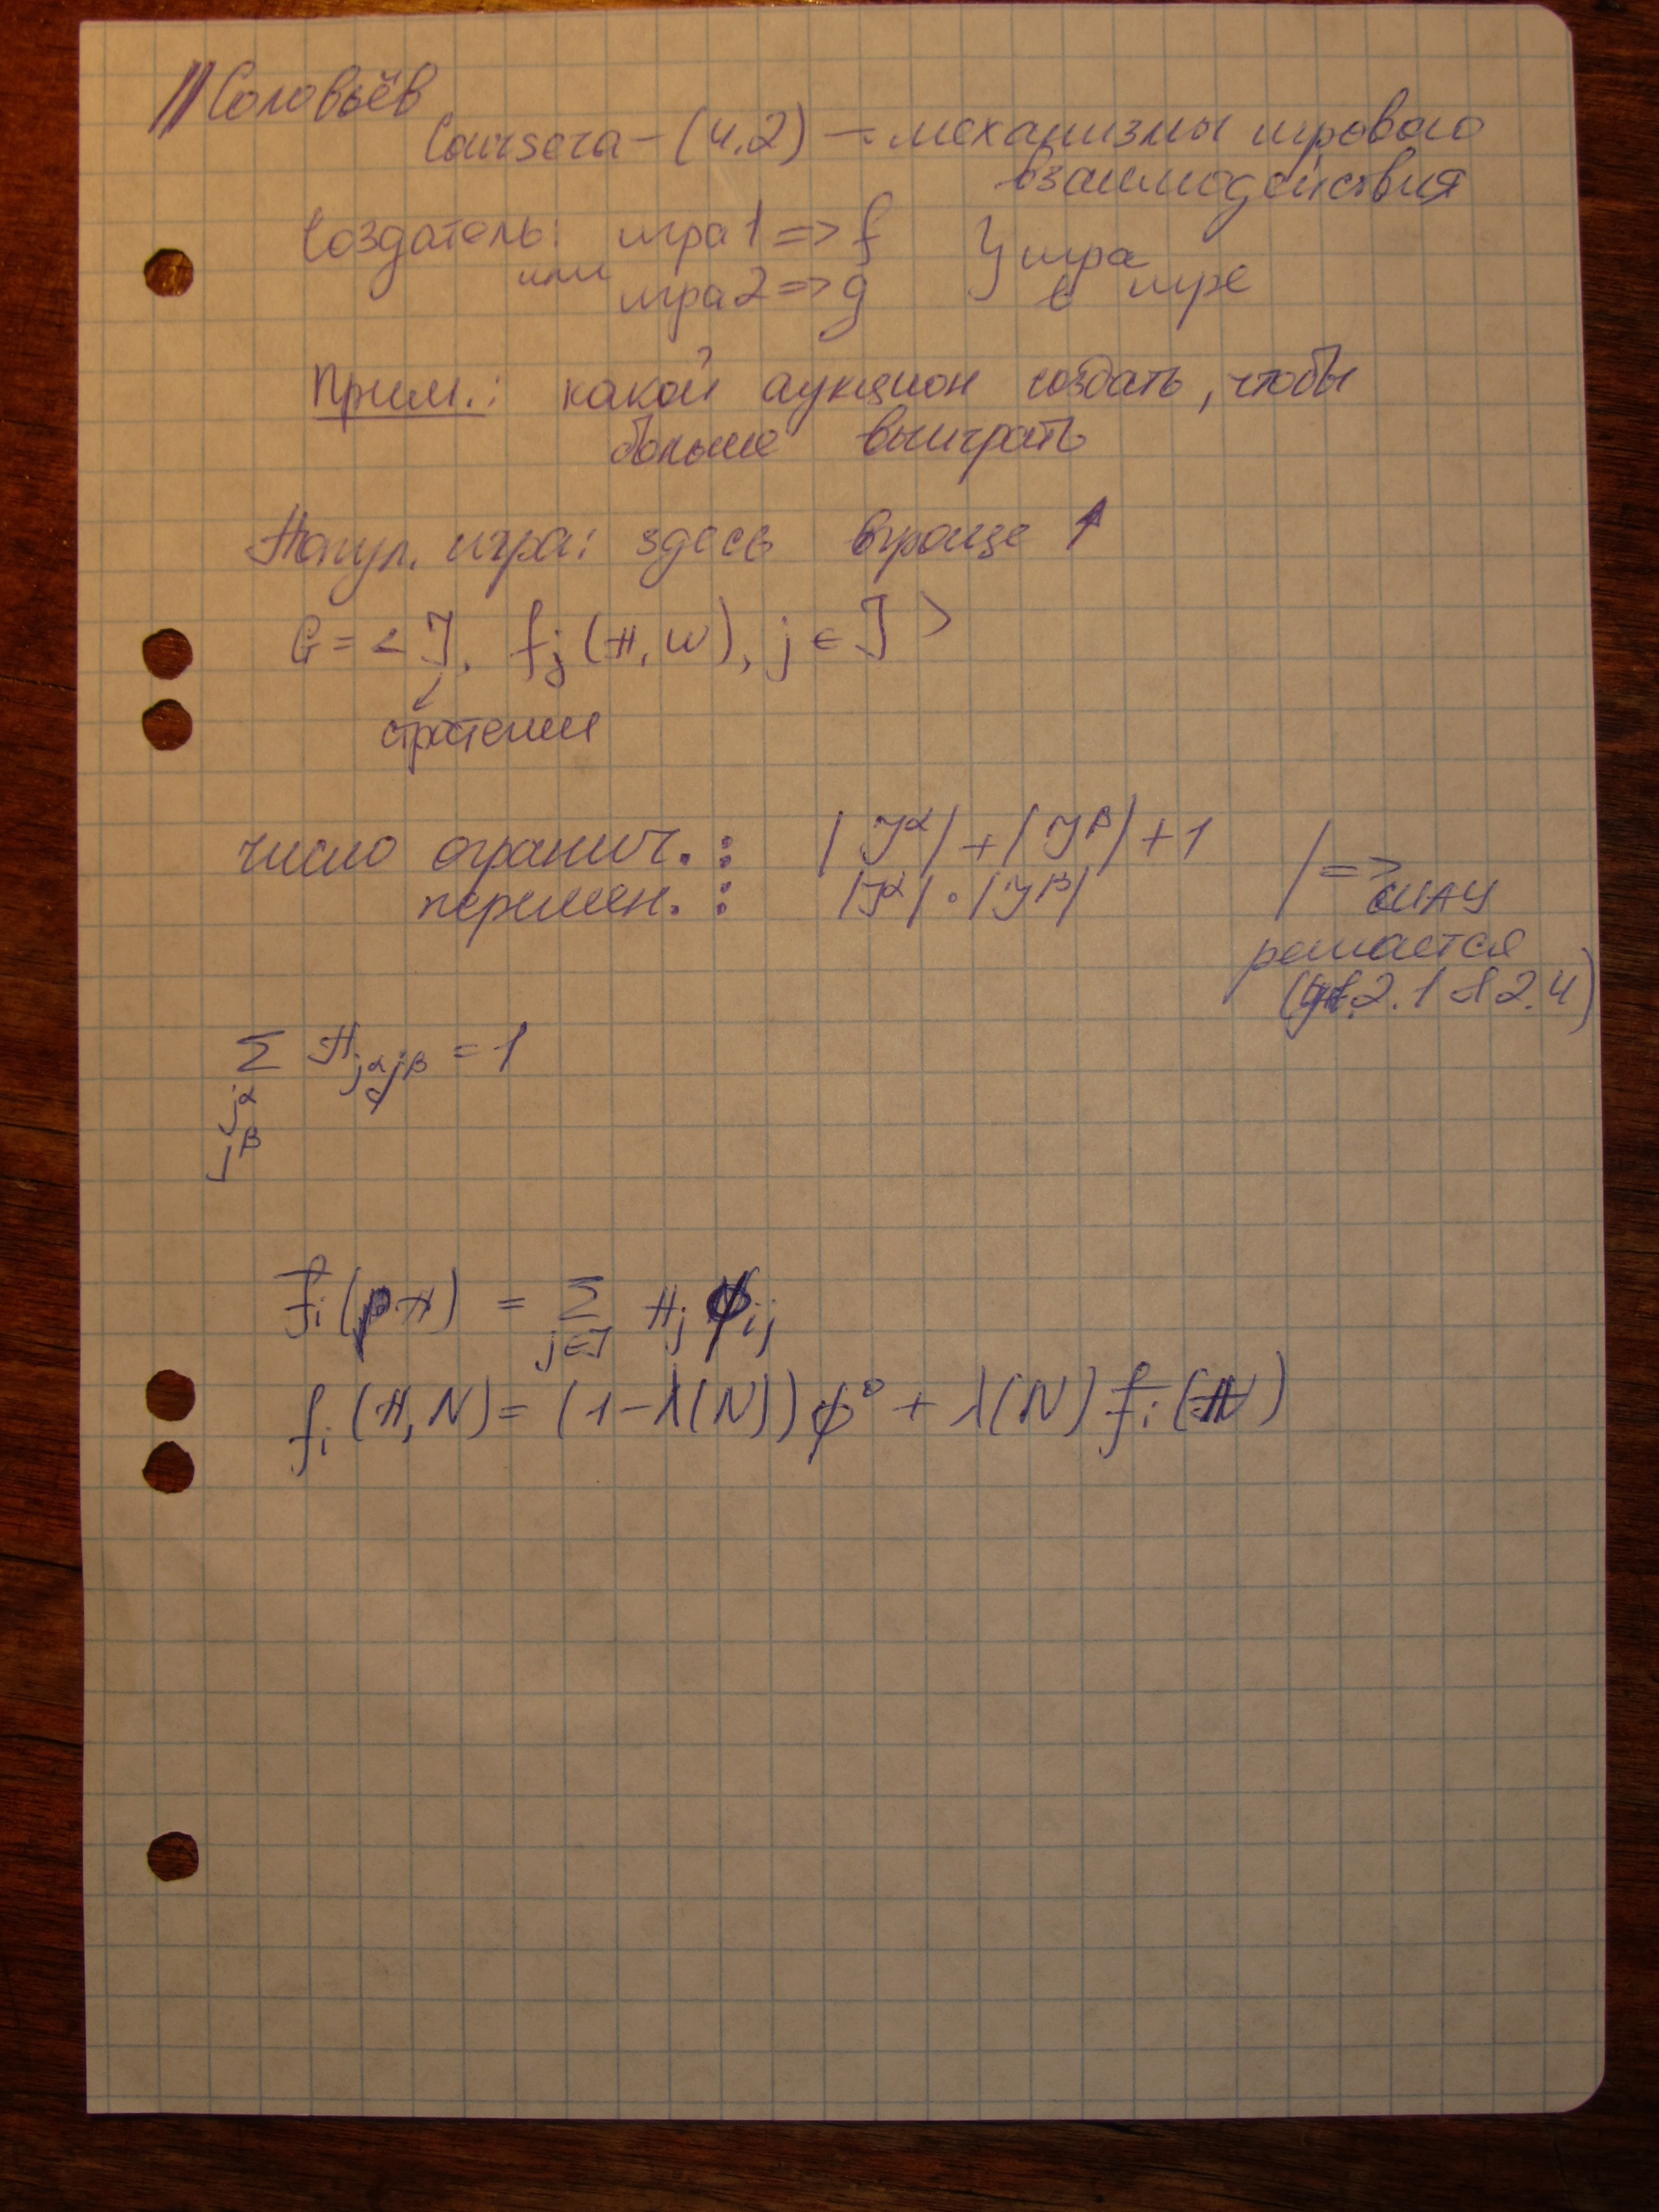 // Соловьёв
Coursera – (4.2) – механизмы игрового
взаимодействия
Создатель: игра 1 => f } игра
или игра 2 => g в игре
Прим.: какой аукцион создать, чтобы
больше выиграть
Попул. игра: здесь вроще ↑
G = < J, f_j (π, W), j ∈ J >
стратегии
число огранич.: |J^α| + |J^β| + 1
перемен.: |J^α| · |J^β| | => СЛАУ
решается
2.1 2.4)
Σ π_{j^α j^β} = 1
j^α
j^β
f̄_i (π) = Σ_{j∈J} π_j φ_{ij}
f_i (π, N) = (1 – λ(N)) φ° + λ(N) f̄_i (π)